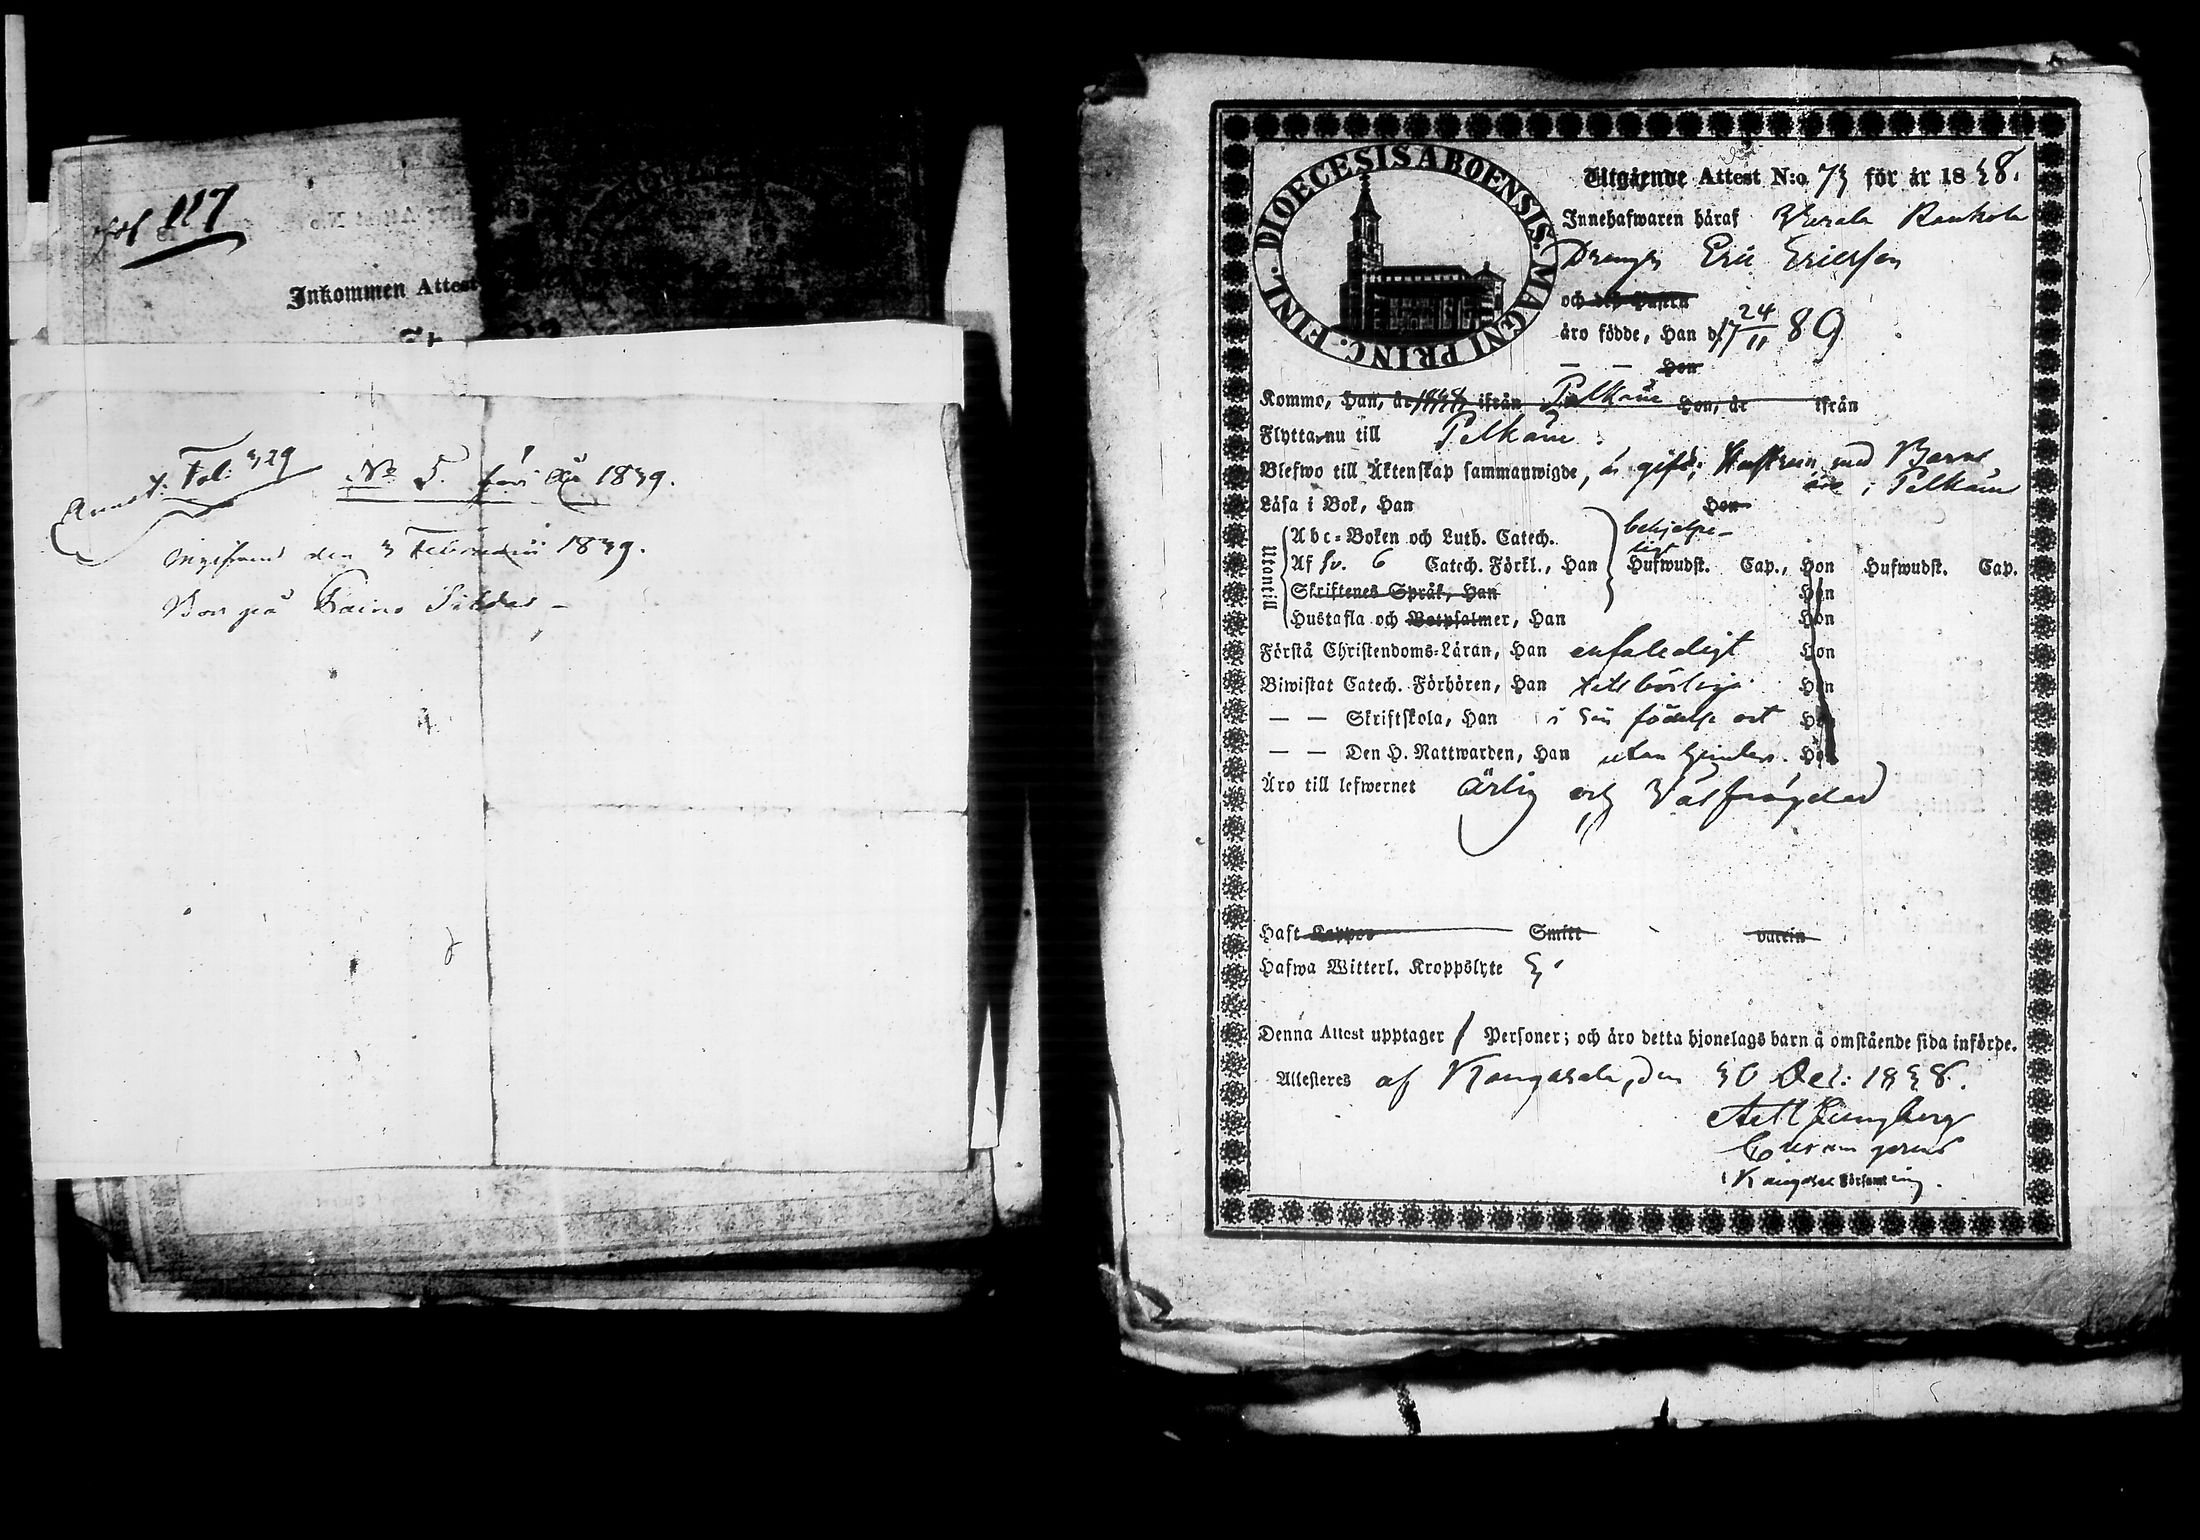 fol 117
Inkommen Attest
Annot. Fol: 329
No 5. för År 1839.
Ingifvend den 3 Februarii 1839.
Bor på
DIOECESIS ABOENSIS. MAGNI PRINC. FINL.
Utgående Attest N:o 73 för år 1838.
Innehafwaren häraf
Drengen Eric Ericsson
och dess Hustru
äro födde, Han d. 17 24/11 89
— — Hon
Kommo, Han, år 1838 ifrån Pelkäne Hon, år ifrån
Flytta nu till Pelkäne.
Blefwo till Äktenskap sammanwigde, är gift; Hustrun med Barns
äre i Pelkäne
Läsa i Bok, Han Hon
Utantill
Abc-Boken och Luth. Catech. behjelpe-
ligt
Af Sv. 6 Catech. Förkl., Han Hufwudst. Cap., Hon Hufwudst. Cap.
Skriftenes Språk, Han Hon
Hustafla och Botpsalmer, Han Hon
Förstå Christendoms-Läran, Han enfaldigt Hon
Biwistat Catech. Förhören, Han tillbörlig Hon
— — Skriftskola, Han i sin födelse ort Hon
— — Den H. Nattwarden, Han utan hinder. Hon
Äro till lefwernet ärlig och Välfrägdad
Haft Koppor Smitt vaccin
Hafwa Witterl. Kroppslyte Ej.
Denna Attest upptager 1 Personer; och äro detta hjonelags barn å omstående sida införde.
Attesteres af Kangasala, den 30 Dec: 1838.
Ljungberg
Curam gerens
i Kangasala Församling.